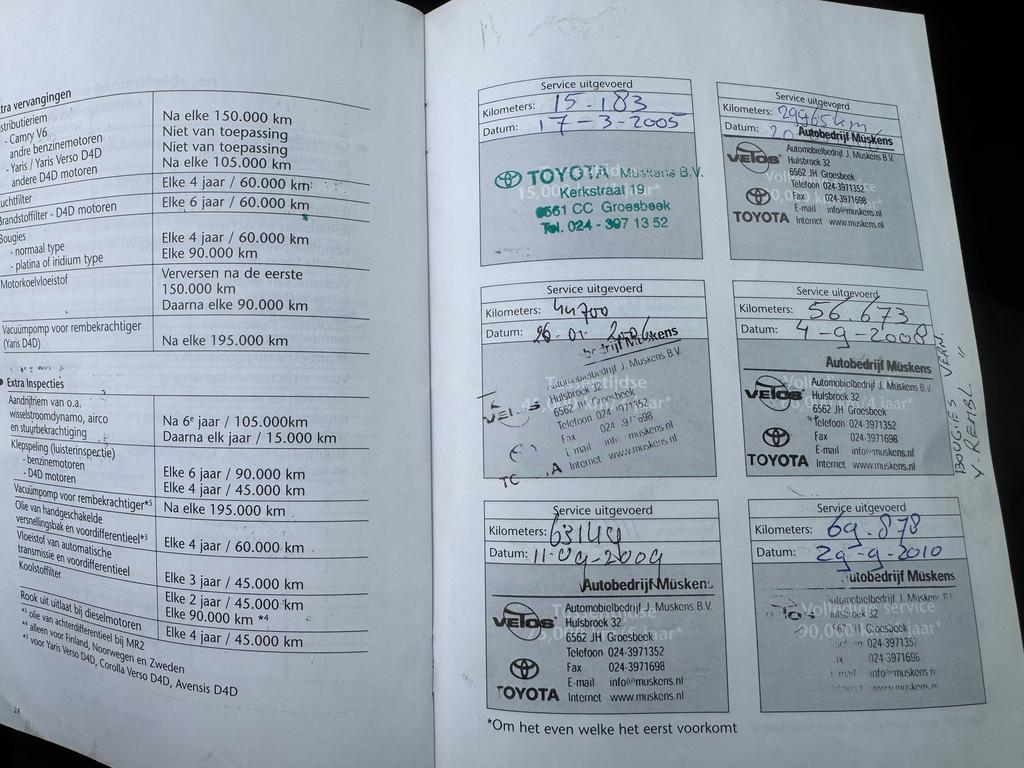 tra vervangingen
stributieriem
- Camry V6 Na elke 150.000 km
andre benzinemotoren Niet van toepassing
- Yaris / Yaris Verso D4D Niet van toepassing
andere D4D motoren Na elke 105.000 km
uchtfilter Elke 4 jaar / 60.000 km
Brandstoffilter - D4D motoren Elke 6 jaar / 60.000 km
Bougies
- normaal type Elke 4 jaar / 60.000 km
- platina of iridium type Elke 90.000 km
Motorkoelvloeistof Verversen na de eerste
150.000 km
Daarna elke 90.000 km
Vacuümpomp voor rembekrachtiger
(Yaris D4D) Na elke 195.000 km
• Extra Inspecties
Aandrijfriem van o.a.
wisselstroomdynamo, airco Na 6e jaar / 105.000km
en stuurbekrachtiging Daarna elk jaar / 15.000 km
Klepspeling (luisterinspectie)
- benzinemotoren Elke 6 jaar / 90.000 km
- D4D motoren Elke 4 jaar / 45.000 km
Vacuümpomp voor rembekrachtiger*5 Na elke 195.000 km
Olie van handgeschakelde
versnellingsbak en voordifferentieel*3 Elke 4 jaar / 60.000 km
Vloeistof van automatische
transmissie en voordifferentieel Elke 3 jaar / 45.000 km
Koolstoffilter Elke 2 jaar / 45.000 km
Elke 90.000 km *4
Rook uit uitlaat bij dieselmotoren Elke 4 jaar / 45.000 km
*3 olie van achterdifferentieel bij MR2
*4 alleen voor Finland, Noorwegen en Zweden
*5 voor Yaris Verso D4D, Corolla Verso D4D, Avensis D4D
24
Service uitgevoerd
Kilometers: 15-183
Datum: 17-3-2005
TOYOTA Muskens B.V.
Kerkstraat 19
6561 CC Groesbeek
Tel. 024-397 13 52
Service uitgevoerd
Kilometers: 29965km
Datum: 20
Autobedrijf Müskens
VELOS
TOYOTA
Automobielbedrijf J. Muskens B.V.
Hulsbroek 32
6562 JH Groesbeek
Telefoon 024-3971352
Fax 024-3971698
E-mail info@muskens.nl
Internet www.muskens.nl
Service uitgevoerd
Kilometers: 44700
Datum: 26-01-2006
drijf Müskens
Automobielbedrijf J. Muskens B.V.
Hulsbroek 32
6562 JH Groesbeek
Telefoon 024-3971352
Fax
info muskens.nl
Internet www.muskens.nl
Service uitgevoerd
Kilometers: 56.673
Datum: 4-9-2008
Autobedrijf Müskens
VELOS
TOYOTA
Automobielbedrijf J. Muskens B.V.
Hulsbroek 32
6562 JH Groesbeek
Telefoon 024-3971352
Fax 024-3971698
E-mail info@muskens.nl
Internet www.muskens.nl
BOUGIES VERN.
V. REMBL. "
Service uitgevoerd
Kilometers: 63144
Datum: 11-09-2009
Autobedrijf Müskens
VELOS
TOYOTA
Automobielbedrijf J. Muskens B.V.
Hulsbroek 32
6562 JH Groesbeek
Telefoon 024-3971352
Fax 024-3971698
E-mail info@muskens.nl
Internet www.muskens.nl
Service uitgevoerd
Kilometers: 69.878
Datum: 29-9-2010
utobedrijf Müskens
Volledige service
Automobielbedrijf J. Muskens B.V.
Hulsbroek 32
JH Groesbeek
024-3971352
024-3971698
info@muskens.nl
www.muskens.nl
*Om het even welke het eerst voorkomt